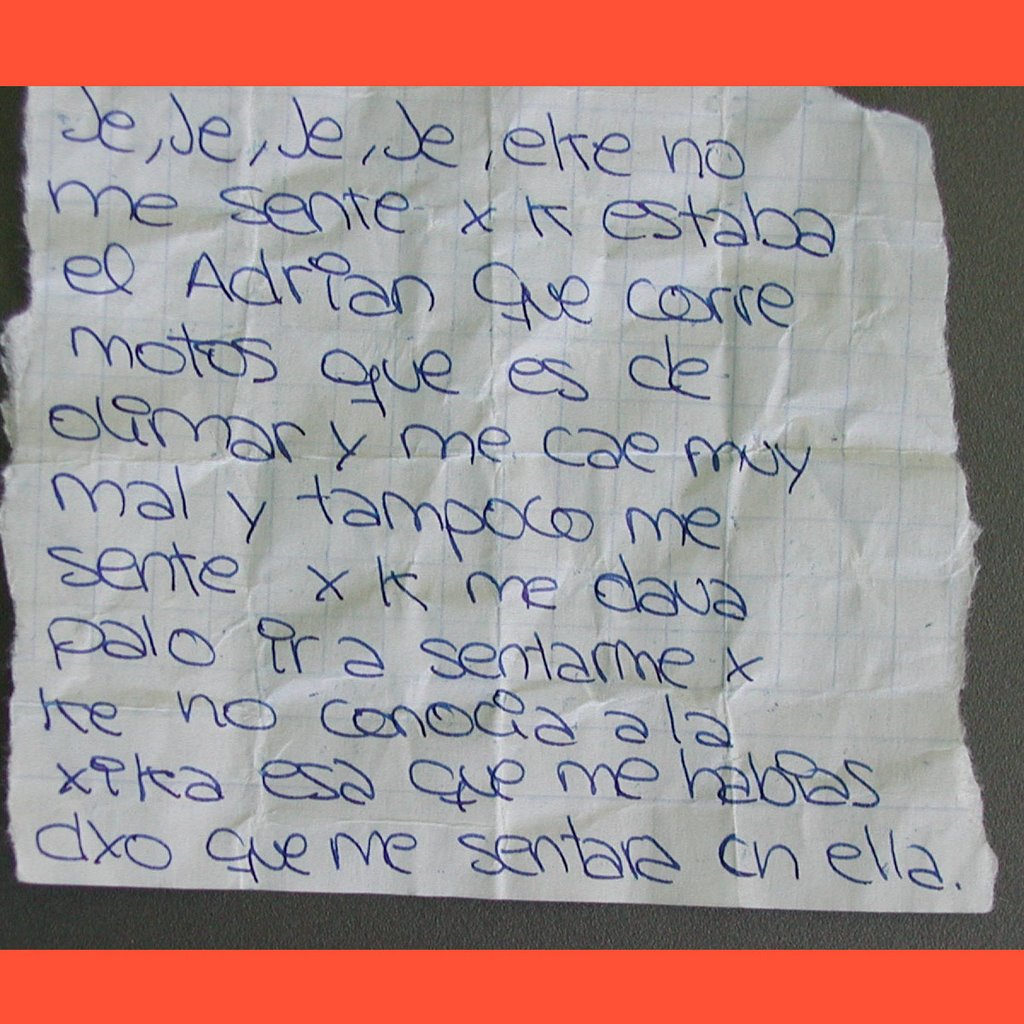 Je, Je, Je, Je, eke no
me sente x k estaba
el Adrian que corre
motos que es de
olimar y me cae muy
mal y tampoco me
sente x k me dava
palo ir a sentarme x
ke no conocia a la
xika esa que me habias
dxo que me sentara cn ella.